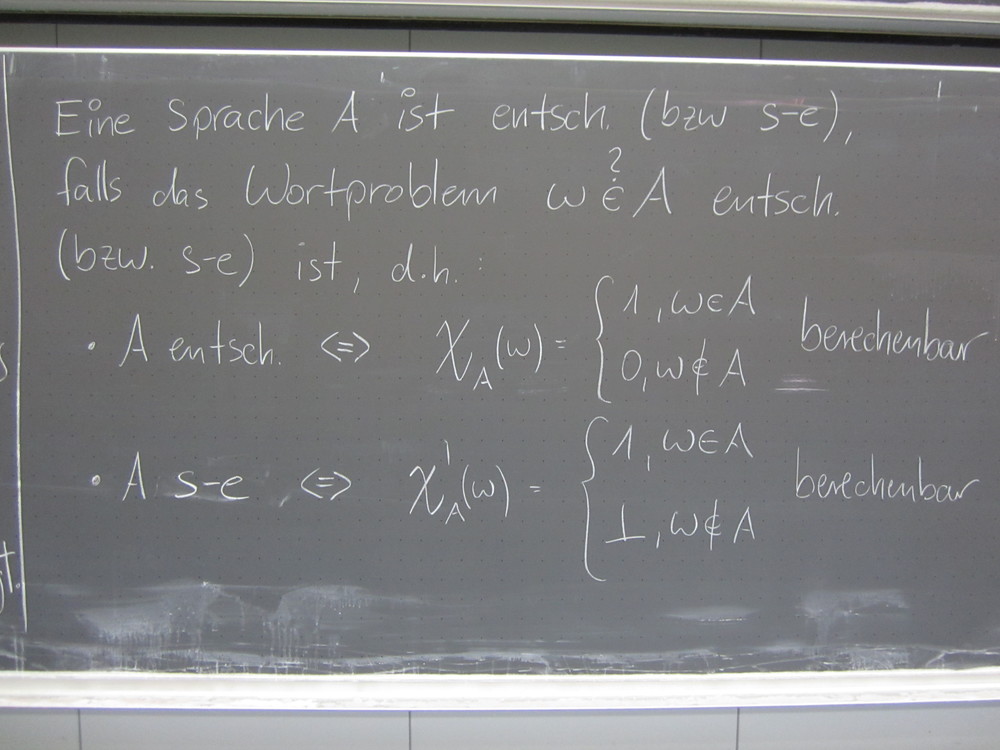 Eine Sprache A ist entsch. (bzw s-e),
falls das Wortproblem ω ?∈ A entsch.
(bzw. s-e) ist, d.h.:
• A entsch. <=> χ_A(ω) = { 1, ω∈A
0, ω∉A berechenbar
• A s-e <=> χ'_A(ω) = { 1, ω∈A
⊥, ω∉A berechenbar